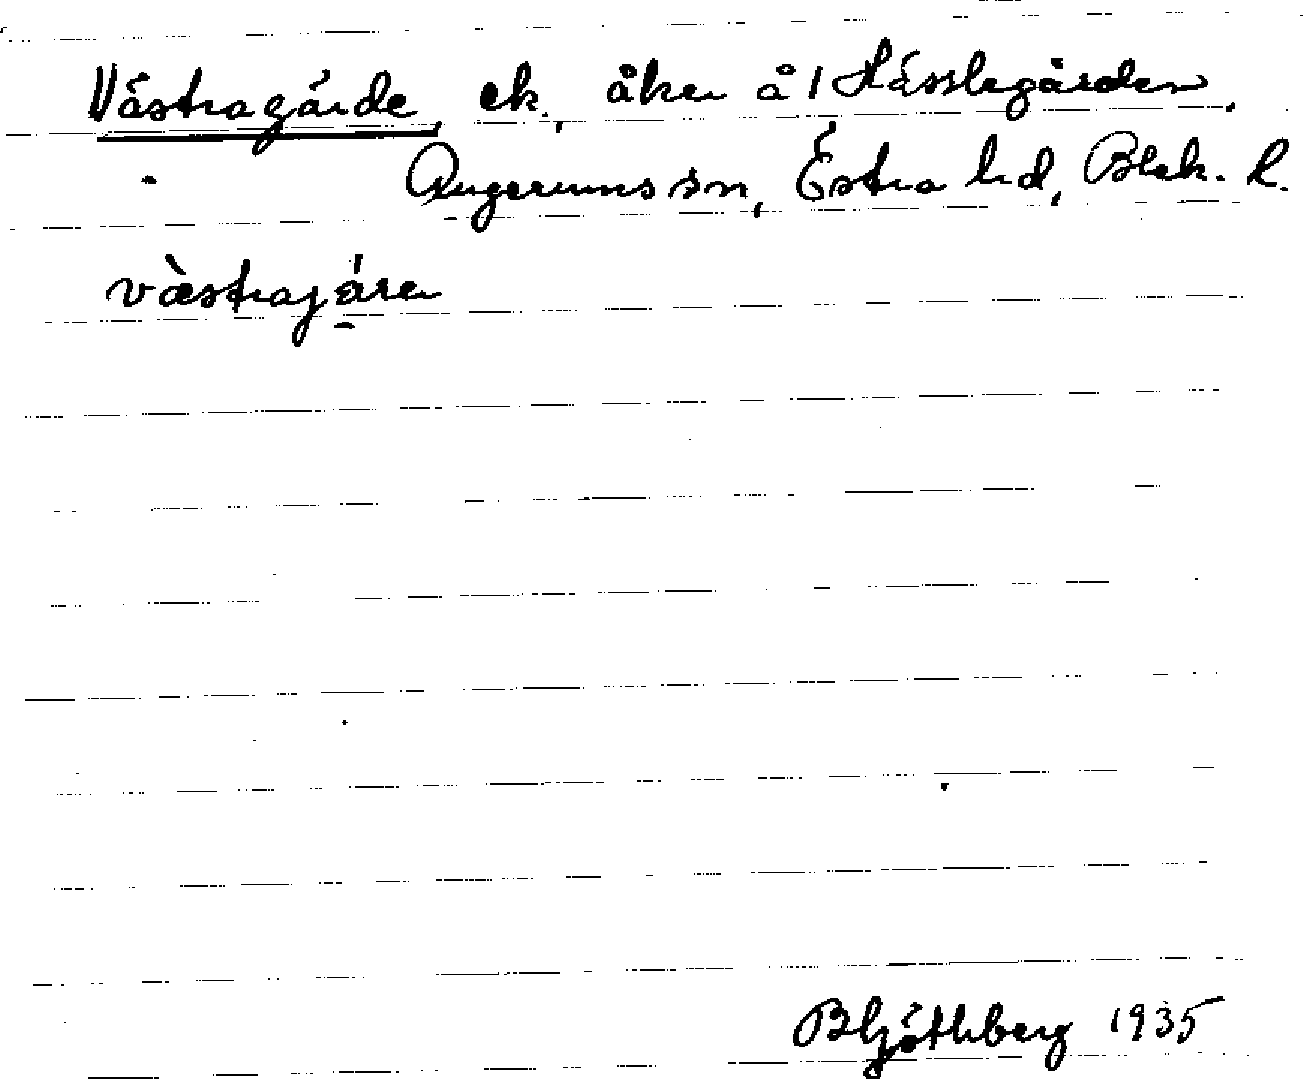 Västragärde, ek., åker å 1 Hässlegården,
Augerums sn, Östra hd, Blek. l.
vàstragáre
1935